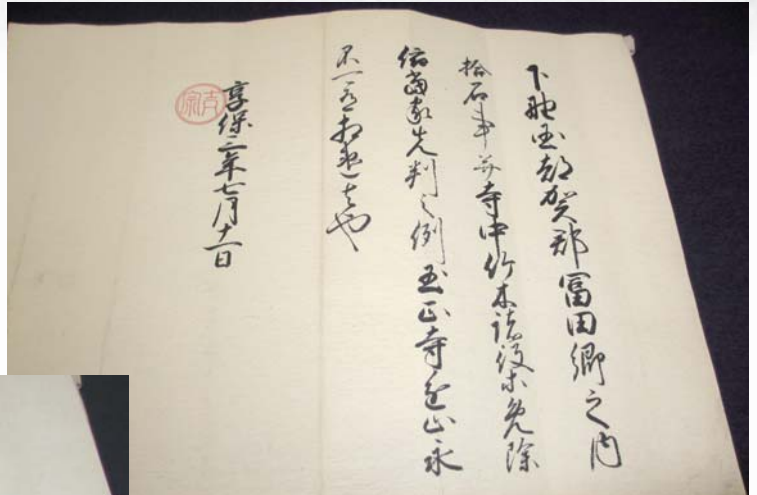 下野国都賀郡冨田郷之内
拾石事并寺中竹木諸役等免除
依當家先判之例玉正寺進止永
不可有相違者也
享保三年七月十一日
吉宗